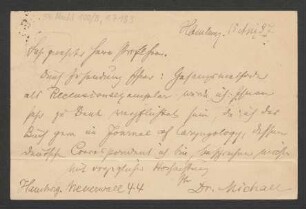 Hamburg,
Sehr geehrter Herr Professor.
Durch Zusendung Ihrer: Gesangsmethode
als Recensionsexemplar werde ich Ihnen
sehr zu Dank verpflichtet sein, da ich das
Buch gern im Journal of Laryngology, dessen
deutscher Correspondent ich bin, besprechen möchte
Mit vorzüglicher Hochachtung
Ihr
Hamburg. 44 Dr. Michael